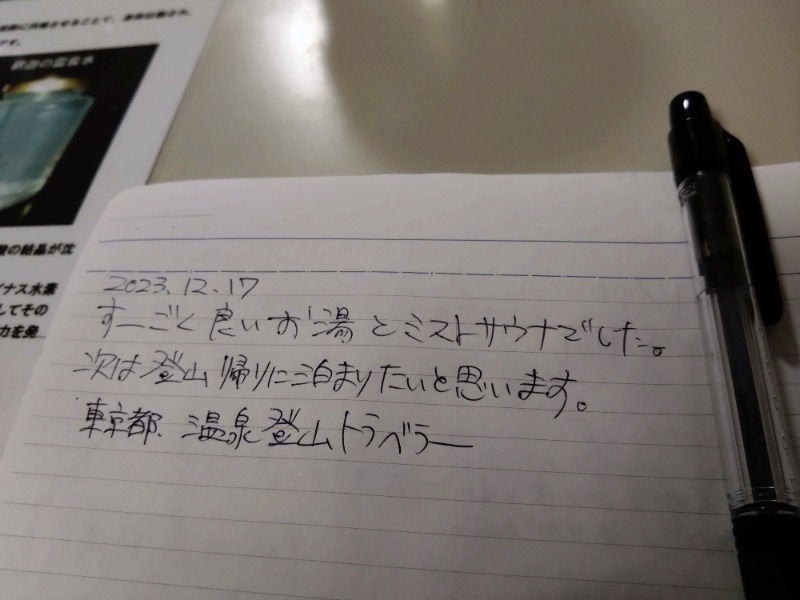 に共鳴させることで、
です。
釈迦の霊泉水
の結晶が沈
イナス水素
してその
力を発
2023.12.17
すーごく良いお湯とミストサウナでした。
次は登山帰りに泊まりたいと思います。
東京都、温泉登山トラベラー